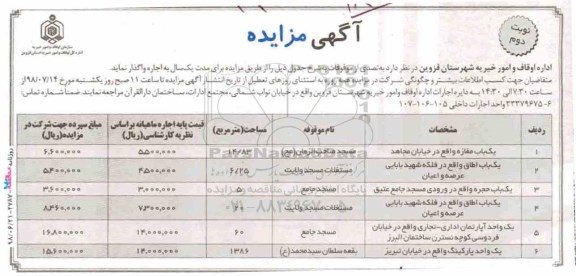 نوبت دوم
آگهی مزایده
سازمان اوقاف و امور خیریه
اداره اوقاف و امور خیریه شهرستان قزوین در نظر دارد به تصدی موقوفات مشروح جدول ذیل را از طریق مزایده برای مدت یک سال به اجاره واگذار نماید.
متقاضیان جهت کسب اطلاعات بیشتر و چگونگی شرکت در به استثنای روزهای تعطیل از تاریخ انتشار آگهی مزایده تا ساعت ۱۱ صبح روز یکشنبه مورخ ۹۸/۰۷/۱۴ از
ساعت ۷:۳۰ الی ۱۴:۳۰ به دایره اجارات اداره اوقاف و امور خیریه شهرستان قزوین واقع در خیابان نواب شمالی، مجتمع ادارات، ساختمان دارالقرآن مراجعه نمایند. ضمناً شماره تماس:
۶-۳۳۳۷۹۶۷۵ واحد اجارات داخلی ۱۰۵-۱۰۶-۱۰۷
ردیف مشخصات نام موقوفه مساحت (متر مربع) قیمت پایه اجاره ماهیانه براساس نظریه کارشناسی (ریال) مبلغ سپرده جهت شرکت در مزایده (ریال)
۱ یک باب مغازه واقع در خیابان مجاهد مسجد صاحب الزمان (عج) ۱۴/۸۳ ۵۵۰۰۰۰۰ ۶,۶۰۰,۰۰۰
۲ یک باب اطاق واقع در فلکه شهید بابایی عرصه و اعیان مستغلات مسجد ولایت ۶/۲۵ ۴۵۰۰۰۰۰ ۵,۴۰۰,۰۰۰
۳ یک باب حجره واقع در ورودی مسجد جامع عتیق مسجد جامع ۳,۰۰۰,۰۰۰ ۳,۶۰۰,۰۰۰
۴ یک باب اطاق واقع در فلکه شهید بابایی عرصه و اعیان مستغلات مسجد ولایت ۲۰ ۷,۳۰۰,۰۰۰ ۸,۴۶۰,۰۰۰
۵ یک واحد آپارتمان اداری-تجاری واقع در خیابان فردوسی کوچه نسترن ساختمان البرز مسجد جامع ۶۰ ۱۴,۰۰۰,۰۰۰ ۱۶,۸۰۰,۰۰۰
۶ یک واحد پارکینگ واقع در خیابان تبریز بقعه سلطان سید محمد (ع) ۱۳۸۶ ۱۳,۰۰۰,۰۰۰ ۱۵,۶۰۰,۰۰۰
ParsNamadData
۰۲۱-۸۸۳۴۹۶۷۰
۹۸/۰۶/۳۱-۲۷۸۷